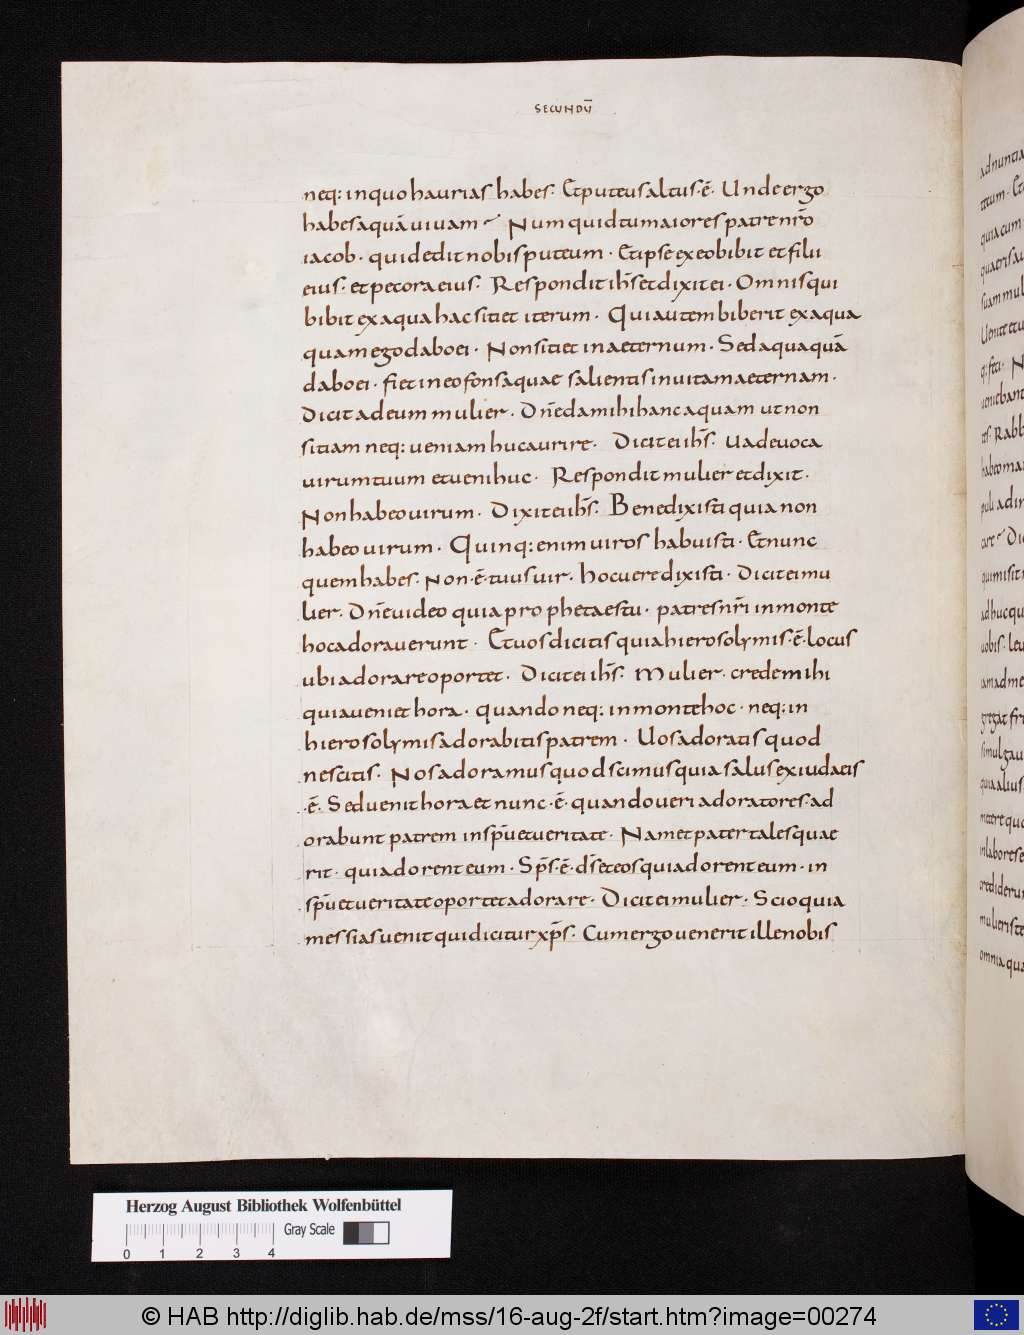 SECUNDŪ
neq: in quo haurias habes· Et puteus altus·ē· Unde ergo
habes aquā uiuam Num quid tu maior es patre nr̄o
iacob· qui dedit nobis puteum· Et ipse ex eo bibit et filii
eius· et pecora eius· Respondit ih̄s et dixit ei· Omnis qui
bibit ex aqua hac sitiet iterum· Qui autem biberit ex aqua
quam ego dabo ei· Non sitiet in aeternum· Sed aqua quā
dabo ei· fiet in eo fons aquae salientis in uitam aeternam·
Dicit ad eum mulier· Dn̄e da mihi hanc aquam ut non
sitiam neq: ueniam huc aurire· Dicit ei ih̄s· Uade uoca
uirum tuum et ueni huc· Respondit mulier et dixit·
Non habeo uirum· Dixit ei ih̄s· Bene dixisti quia non
habeo uirum· Quinq: enim uiros habuisti· Et nunc
quem habes· Non·ē·tuus uir· hoc uere dixisti· Dicit ei mu
lier· Dn̄e uideo quia propheta es tu· patres nr̄i in monte
hoc adorauerunt· Et uos dicitis quia hierosolymis·ē·locus
ubi adorare oportet· Dicit ei ih̄s· Mulier· crede mihi
quia ueniet hora· quando neq: in monte hoc· neq: in
hierosolymis adorabitis patrem· Uos adoratis quod
nescitis· Nos adoramus quod scimus quia salus ex iudaeis
·ē· Sed uenit hora et nunc·ē·quando ueri adoratores·ad
orabunt patrem in sp̄u et ueritate· Nam et pater tales quae
rit· qui adorent eum· Sp̄s·ē·ds̄ et eos qui adorent eum·in
sp̄u et ueritate oportet adorare· Dicit ei mulier· Scio quia
messias uenit qui dicitur xp̄s· Cum ergo uenerit ille nobis
Herzog August Bibliothek Wolfenbüttel
Gray Scale
0 1 2 3 4
© HAB http://diglib.hab.de/mss/16-aug-2f/start.htm?image=00274